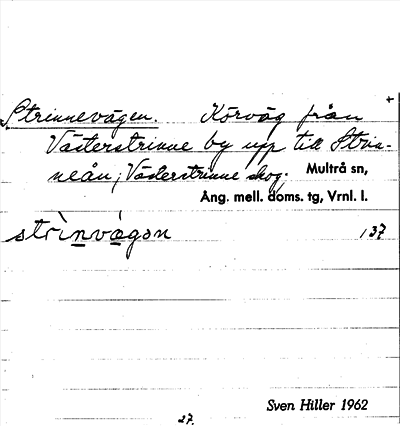 +
Strinnevägen. Körväg från
Västerstrinne by upp till Strin-
neån, i Västerstrinne skog. Multrå sn,
Ång. mell. doms. tg, Vrnl. l.
strìnvä̀gən 137
Sven Hiller 1962
27.